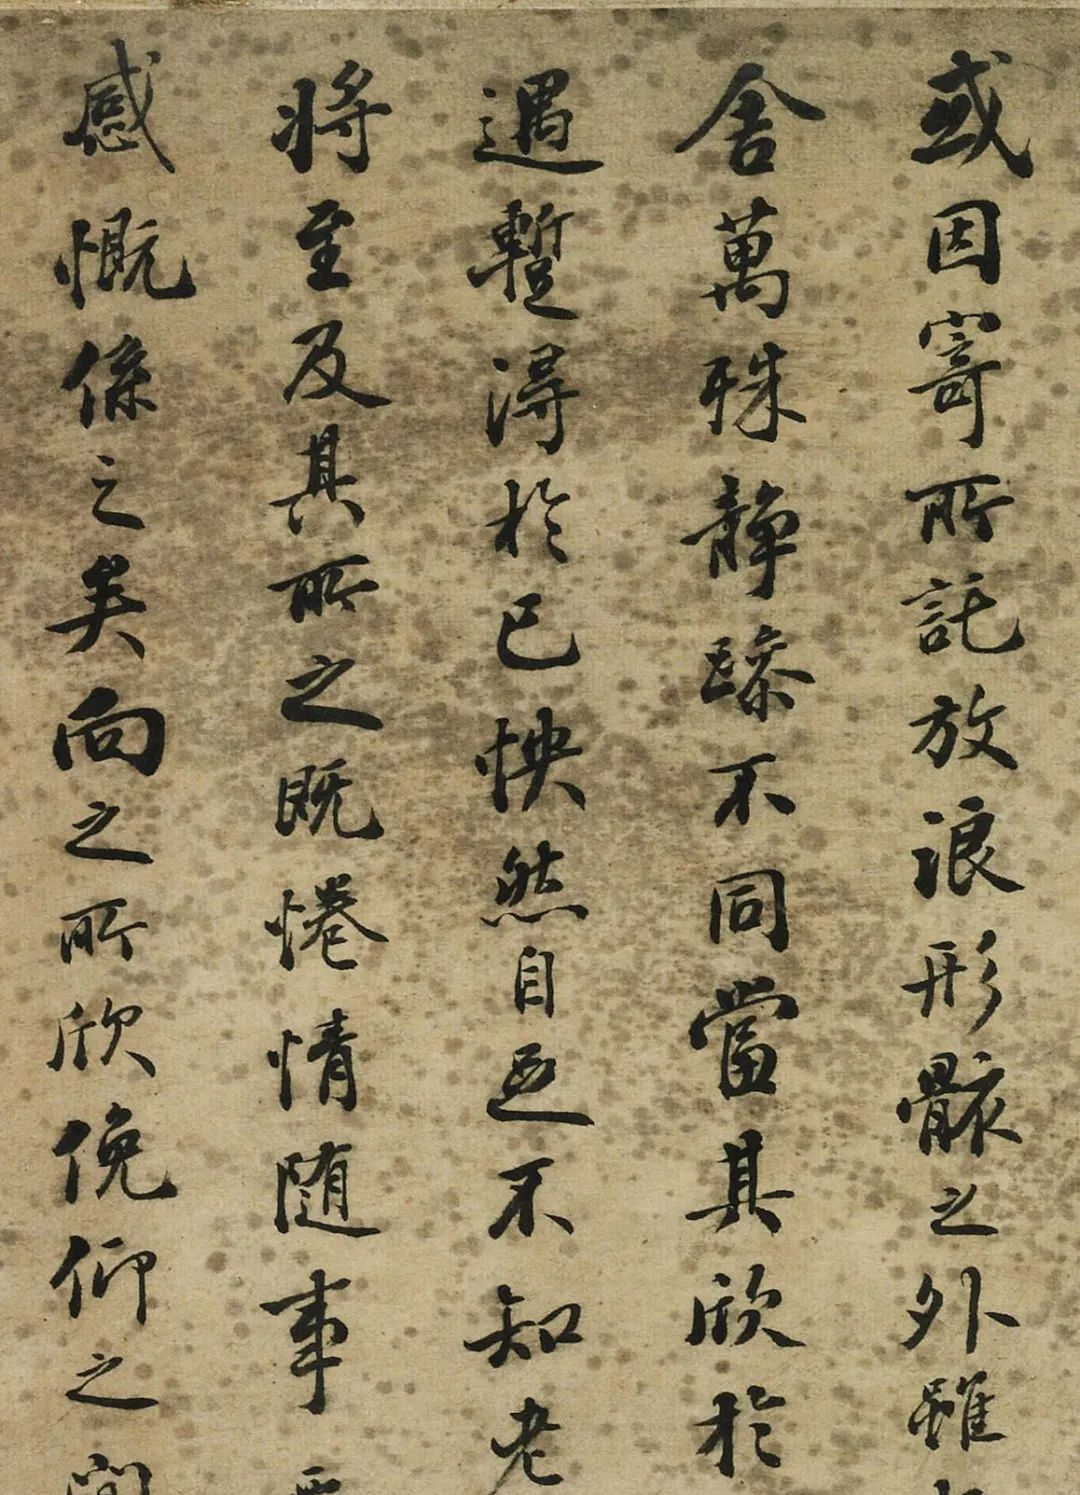 或因寄所託放浪形骸之外雖
舍萬殊静躁不同當其欣於
遇暫得於己怏然自足不知老
將至及其所之既惓情随事
感慨係之矣向之所欣俛仰之間